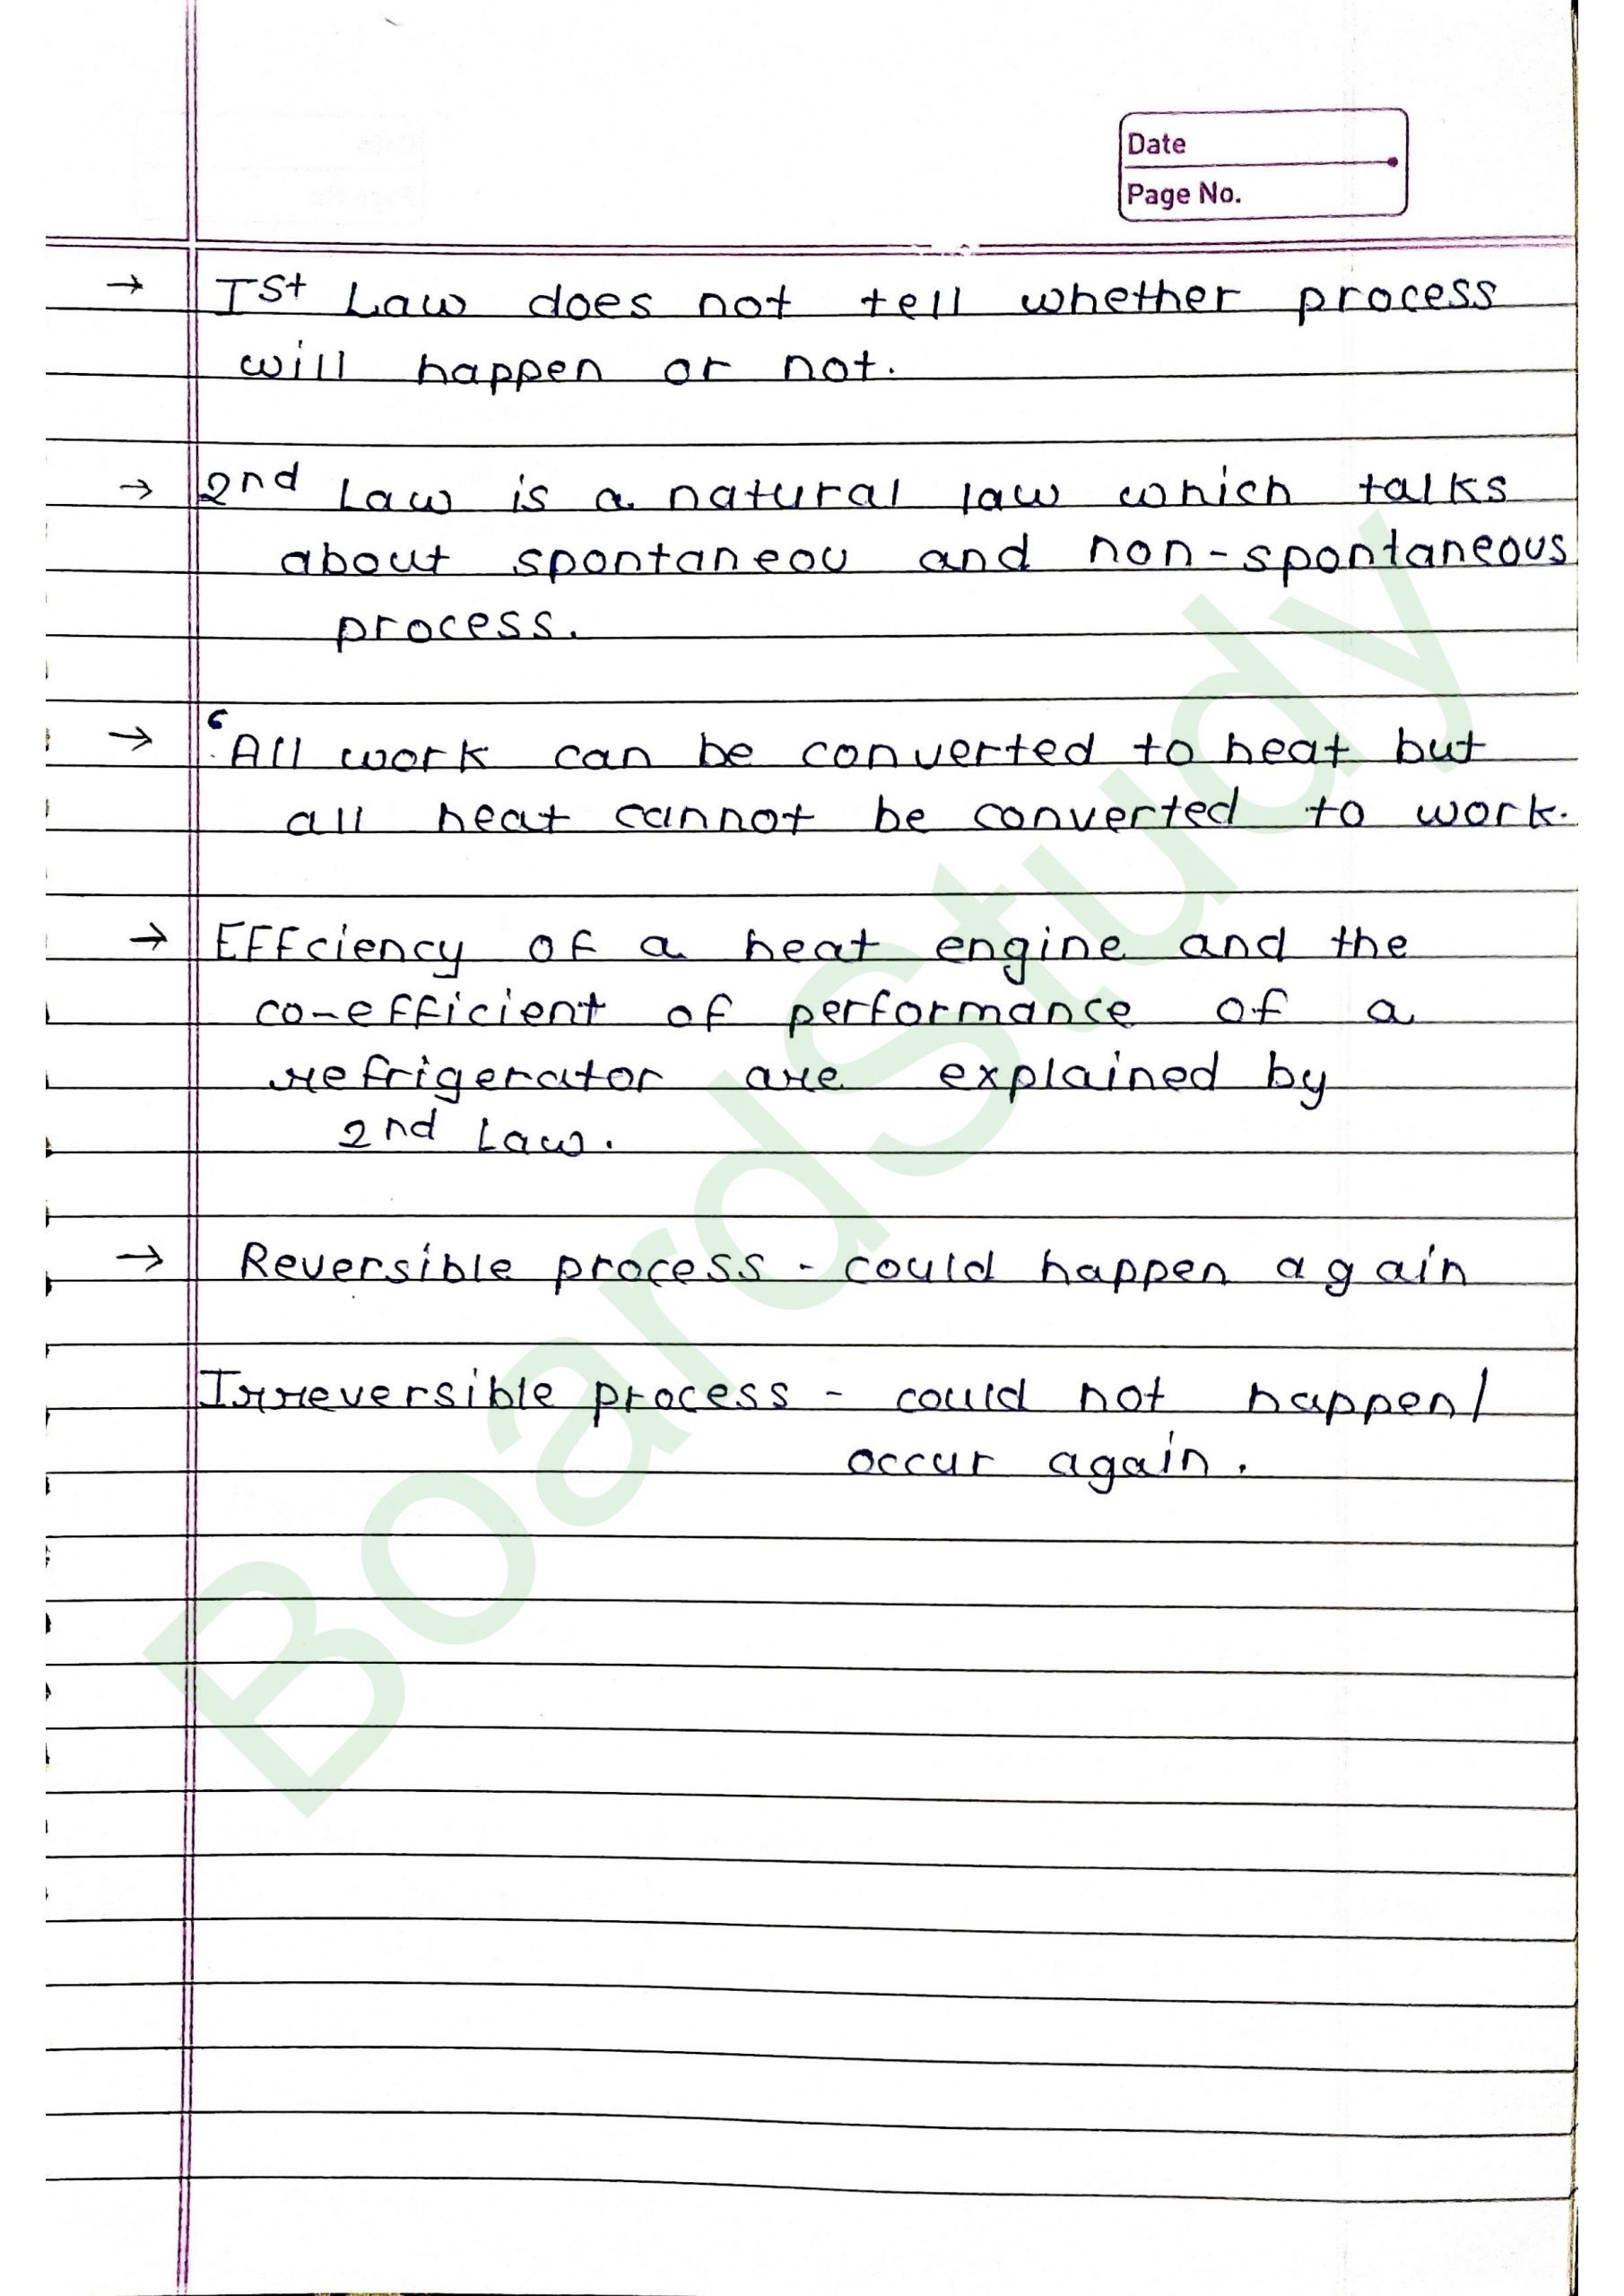 Date
Page No.
→ Ist Law does not tell whether process
will happen or not.
→ 2nd Law is a natural law which talks
about spontaneou and non-spontaneous
process.
→ All work can be converted to heat but
all heat cannot be converted to work.
→ Effciency of a heat engine and the
co-efficient of performance of a
refrigerator are explained by
2nd Law.
→ Reversible process - could happen again
Irreversible process - could not happen/
occur again.
BoardStudy